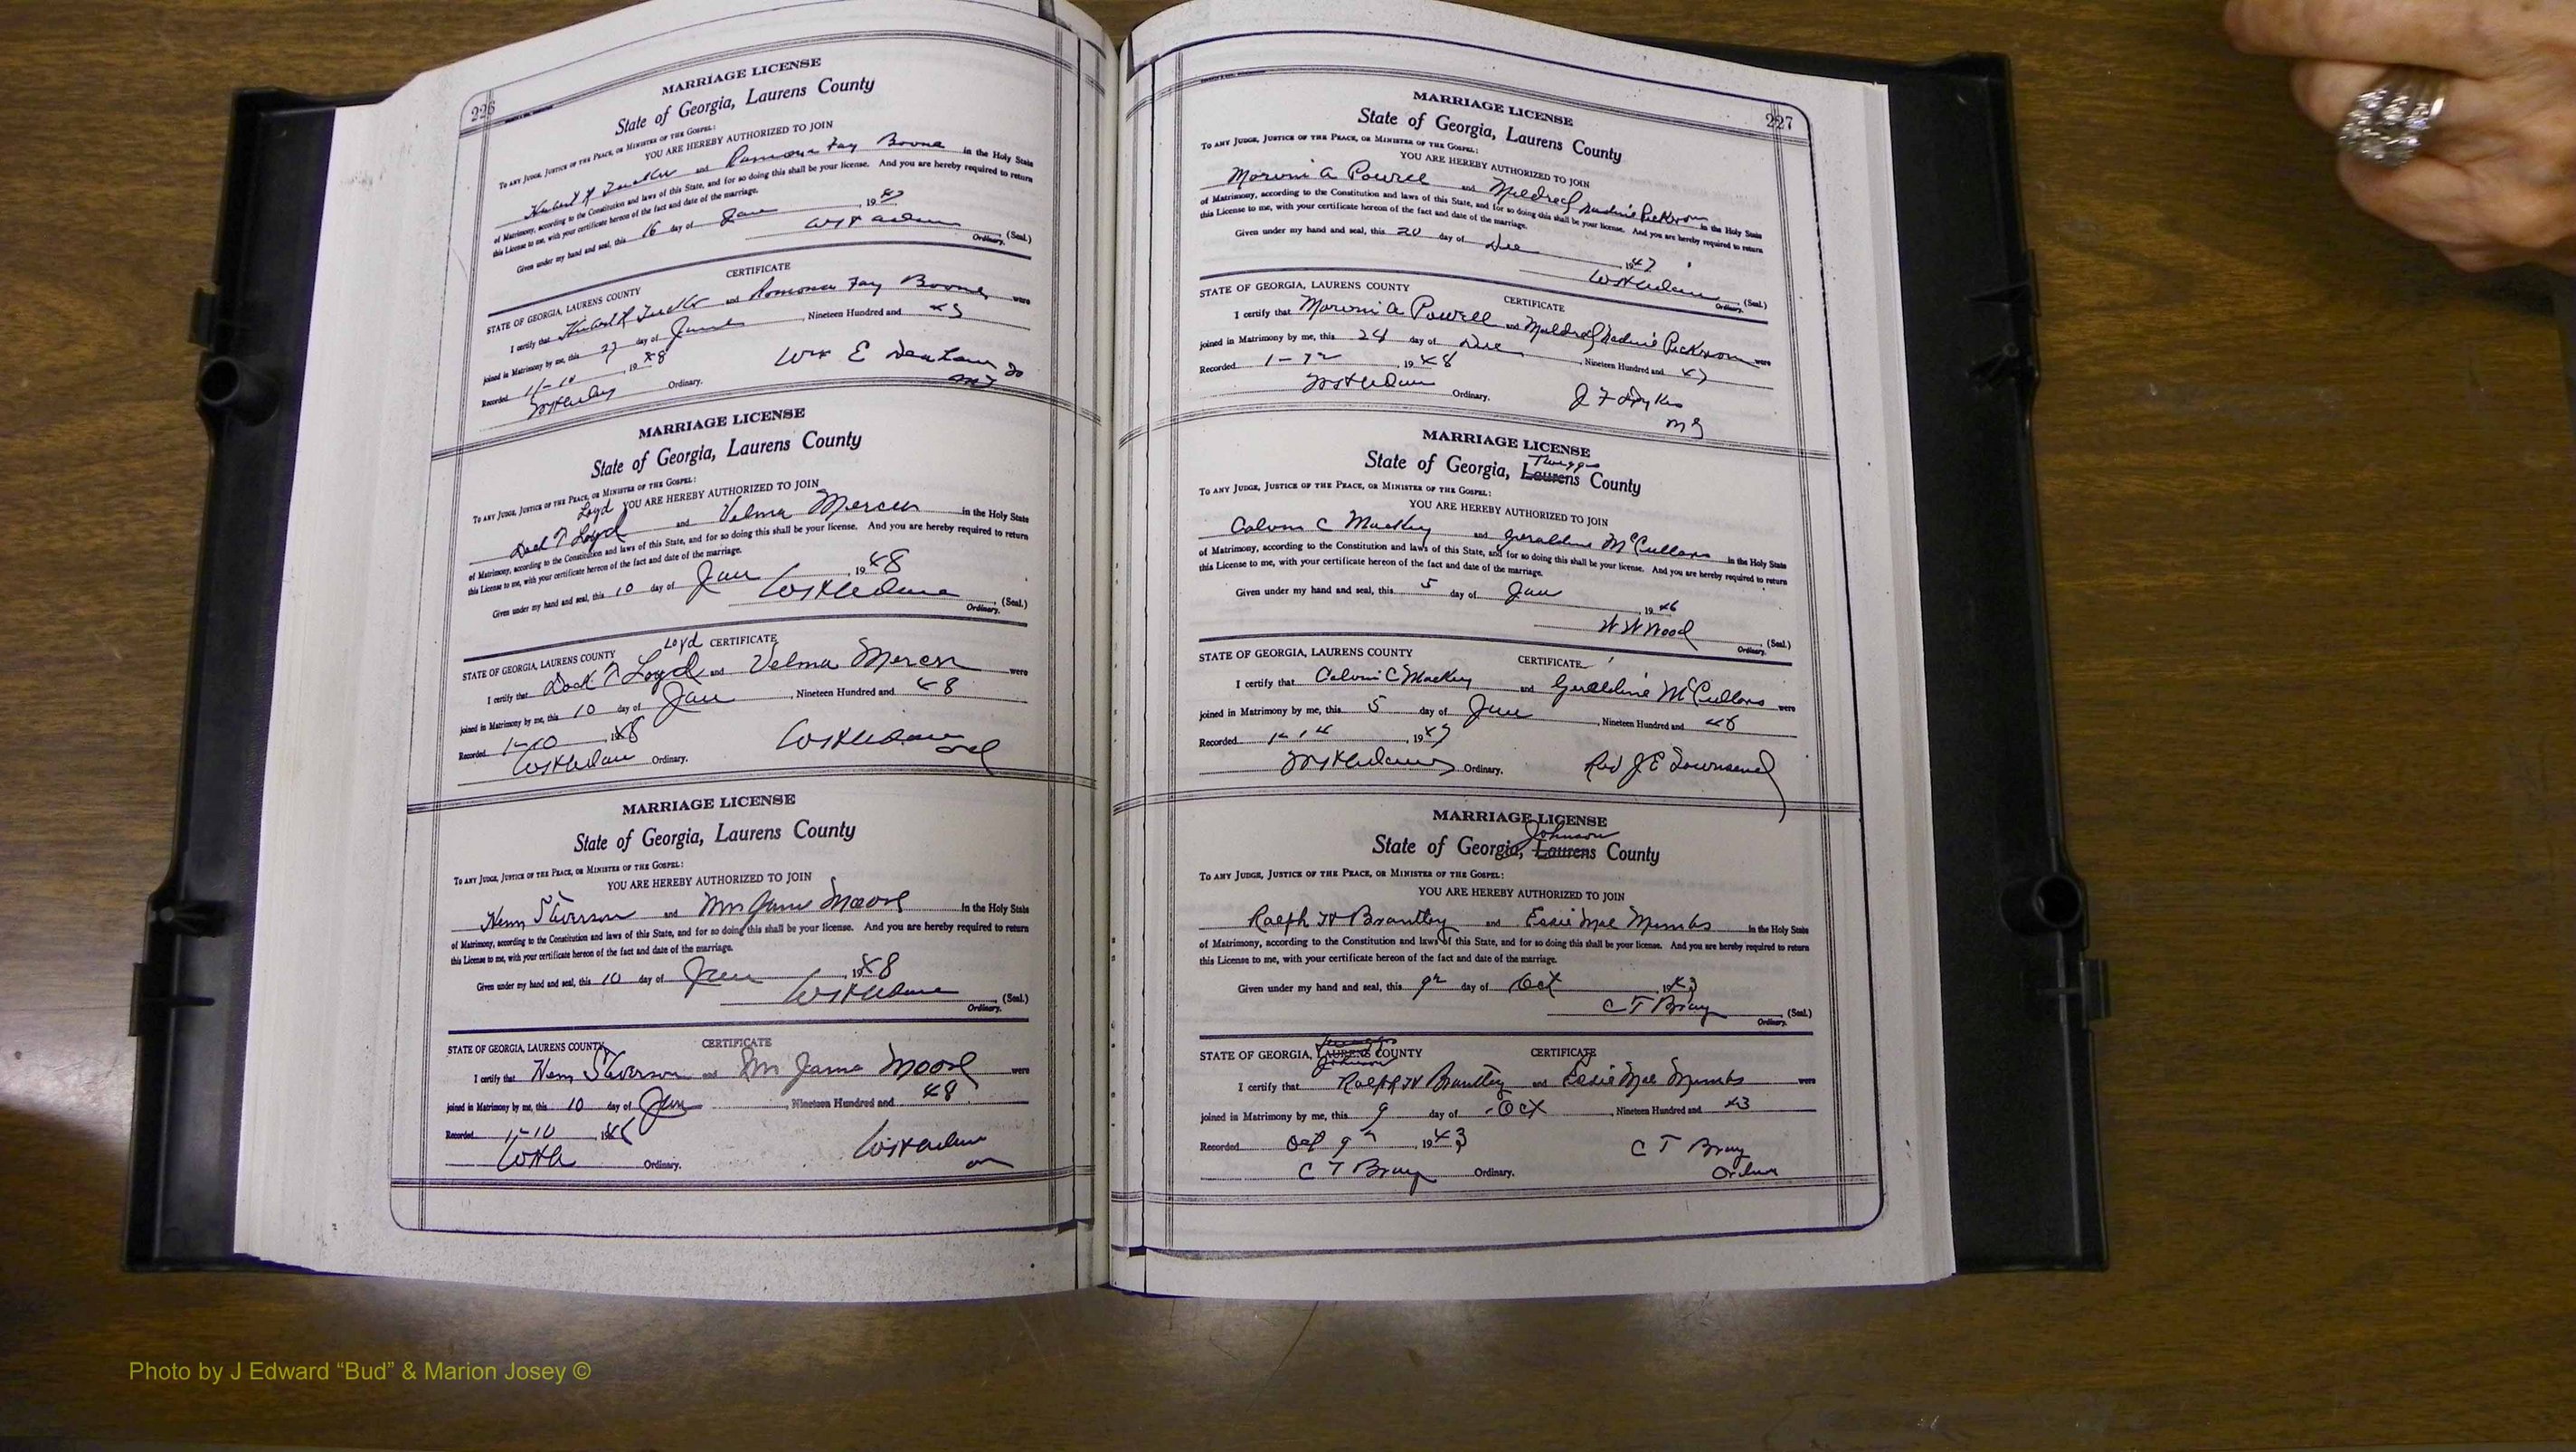 226
MARRIAGE LICENSE
State of Georgia, Laurens County
TO ANY JUDGE, JUSTICE OF THE PEACE, OR MINISTER OF THE GOSPEL:
YOU ARE HEREBY AUTHORIZED TO JOIN
Hubert R Tucker and Ramona Fay Boone in the Holy State
of Matrimony, according to the Constitution and laws of this State, and for so doing this shall be your license. And you are hereby required to return
this License to me, with your certificate hereon of the fact and date of the marriage.
Given under my hand and seal, this 16 day of Jan 1947
(Seal.)
Ordinary.
CERTIFICATE
STATE OF GEORGIA, LAURENS COUNTY
I certify that Hubert R Tucker and Romona Fay Boone were
joined in Matrimony by me, this 27 day of , Nineteen Hundred and
Recorded 11-10, 1948
Ordinary.
Wm E
MARRIAGE LICENSE
State of Georgia, Laurens County
TO ANY JUDGE, JUSTICE OF THE PEACE, OR MINISTER OF THE GOSPEL:
YOU ARE HEREBY AUTHORIZED TO JOIN
Loyd
Dock T Loyd and Velma Mercer in the Holy State
of Matrimony, according to the Constitution and laws of this State, and for so doing this shall be your license. And you are hereby required to return
this License to me, with your certificate hereon of the fact and date of the marriage.
Given under my hand and seal, this 10 day of Jan, 1948
(Seal.)
Ordinary.
Loyd CERTIFICATE
STATE OF GEORGIA, LAURENS COUNTY
I certify that Dock T Loyd and Velma Mercer were
joined in Matrimony by me, this 10 day of Jan, Nineteen Hundred and 48
Recorded 1-10, 1948
Ordinary.
MARRIAGE LICENSE
State of Georgia, Laurens County
TO ANY JUDGE, JUSTICE OF THE PEACE, OR MINISTER OF THE GOSPEL:
YOU ARE HEREBY AUTHORIZED TO JOIN
and Mrs Moore in the Holy State
of Matrimony, according to the Constitution and laws of this State, and for so doing this shall be your license. And you are hereby required to return
this License to me, with your certificate hereon of the fact and date of the marriage.
Given under my hand and seal, this 10 day of Jan, 1948
(Seal.)
Ordinary.
STATE OF GEORGIA, LAURENS COUNTY CERTIFICATE
I certify that and Mrs Moore were
joined in Matrimony by me, this 10 day of Jan, Nineteen Hundred and 48
Recorded 1-10
WHA Ordinary.
227
MARRIAGE LICENSE
State of Georgia, Laurens County
TO ANY JUDGE, JUSTICE OF THE PEACE, OR MINISTER OF THE GOSPEL:
YOU ARE HEREBY AUTHORIZED TO JOIN
Moroni A Powell and Mildred Nadine Peckrom in the Holy State
of Matrimony, according to the Constitution and laws of this State, and for so doing this shall be your license. And you are hereby required to return
this License to me, with your certificate hereon of the fact and date of the marriage.
Given under my hand and seal, this 20 day of Dec 1947
(Seal.)
Ordinary.
STATE OF GEORGIA, LAURENS COUNTY CERTIFICATE
I certify that Moroni A Powell and Mildred Nadine Peckrom were
joined in Matrimony by me, this 24 day of Dec, Nineteen Hundred and 47
Recorded 1-12, 1948
Ordinary.
J F Dykes
MG
MARRIAGE LICENSE
Twiggs
State of Georgia, Laurens County
TO ANY JUDGE, JUSTICE OF THE PEACE, OR MINISTER OF THE GOSPEL:
YOU ARE HEREBY AUTHORIZED TO JOIN
Calvin C Mackey and Geraldine McCullars in the Holy State
of Matrimony, according to the Constitution and laws of this State, and for so doing this shall be your license. And you are hereby required to return
this License to me, with your certificate hereon of the fact and date of the marriage.
Given under my hand and seal, this 5 day of Jan, 1946
W W Wood (Seal.)
Ordinary.
STATE OF GEORGIA, LAURENS COUNTY CERTIFICATE
I certify that Calvin C Mackey and Geraldine McCullars were
joined in Matrimony by me, this 5 day of Jan, Nineteen Hundred and 46
Recorded 1-14, 1947
Ordinary. Rev J E Townsend
MARRIAGE LICENSE
Johnson
State of Georgia, Laurens County
TO ANY JUDGE, JUSTICE OF THE PEACE, OR MINISTER OF THE GOSPEL:
YOU ARE HEREBY AUTHORIZED TO JOIN
Ralph W Brantley and Essie Mae Mimbs in the Holy State
of Matrimony, according to the Constitution and laws of this State, and for so doing this shall be your license. And you are hereby required to return
this License to me, with your certificate hereon of the fact and date of the marriage.
Given under my hand and seal, this 9th day of Oct, 1943
C T Bray (Seal.)
Ordinary.
Twiggs
STATE OF GEORGIA, LAURENS COUNTY CERTIFICATE
Johnson
I certify that Ralph W Brantley and Essie Mae Mimbs were
joined in Matrimony by me, this 9 day of Oct, Nineteen Hundred and 43
Recorded Oct 9th, 1943 C T Bray
C T Bray Ordinary.
Photo by J Edward “Bud” & Marion Josey ©